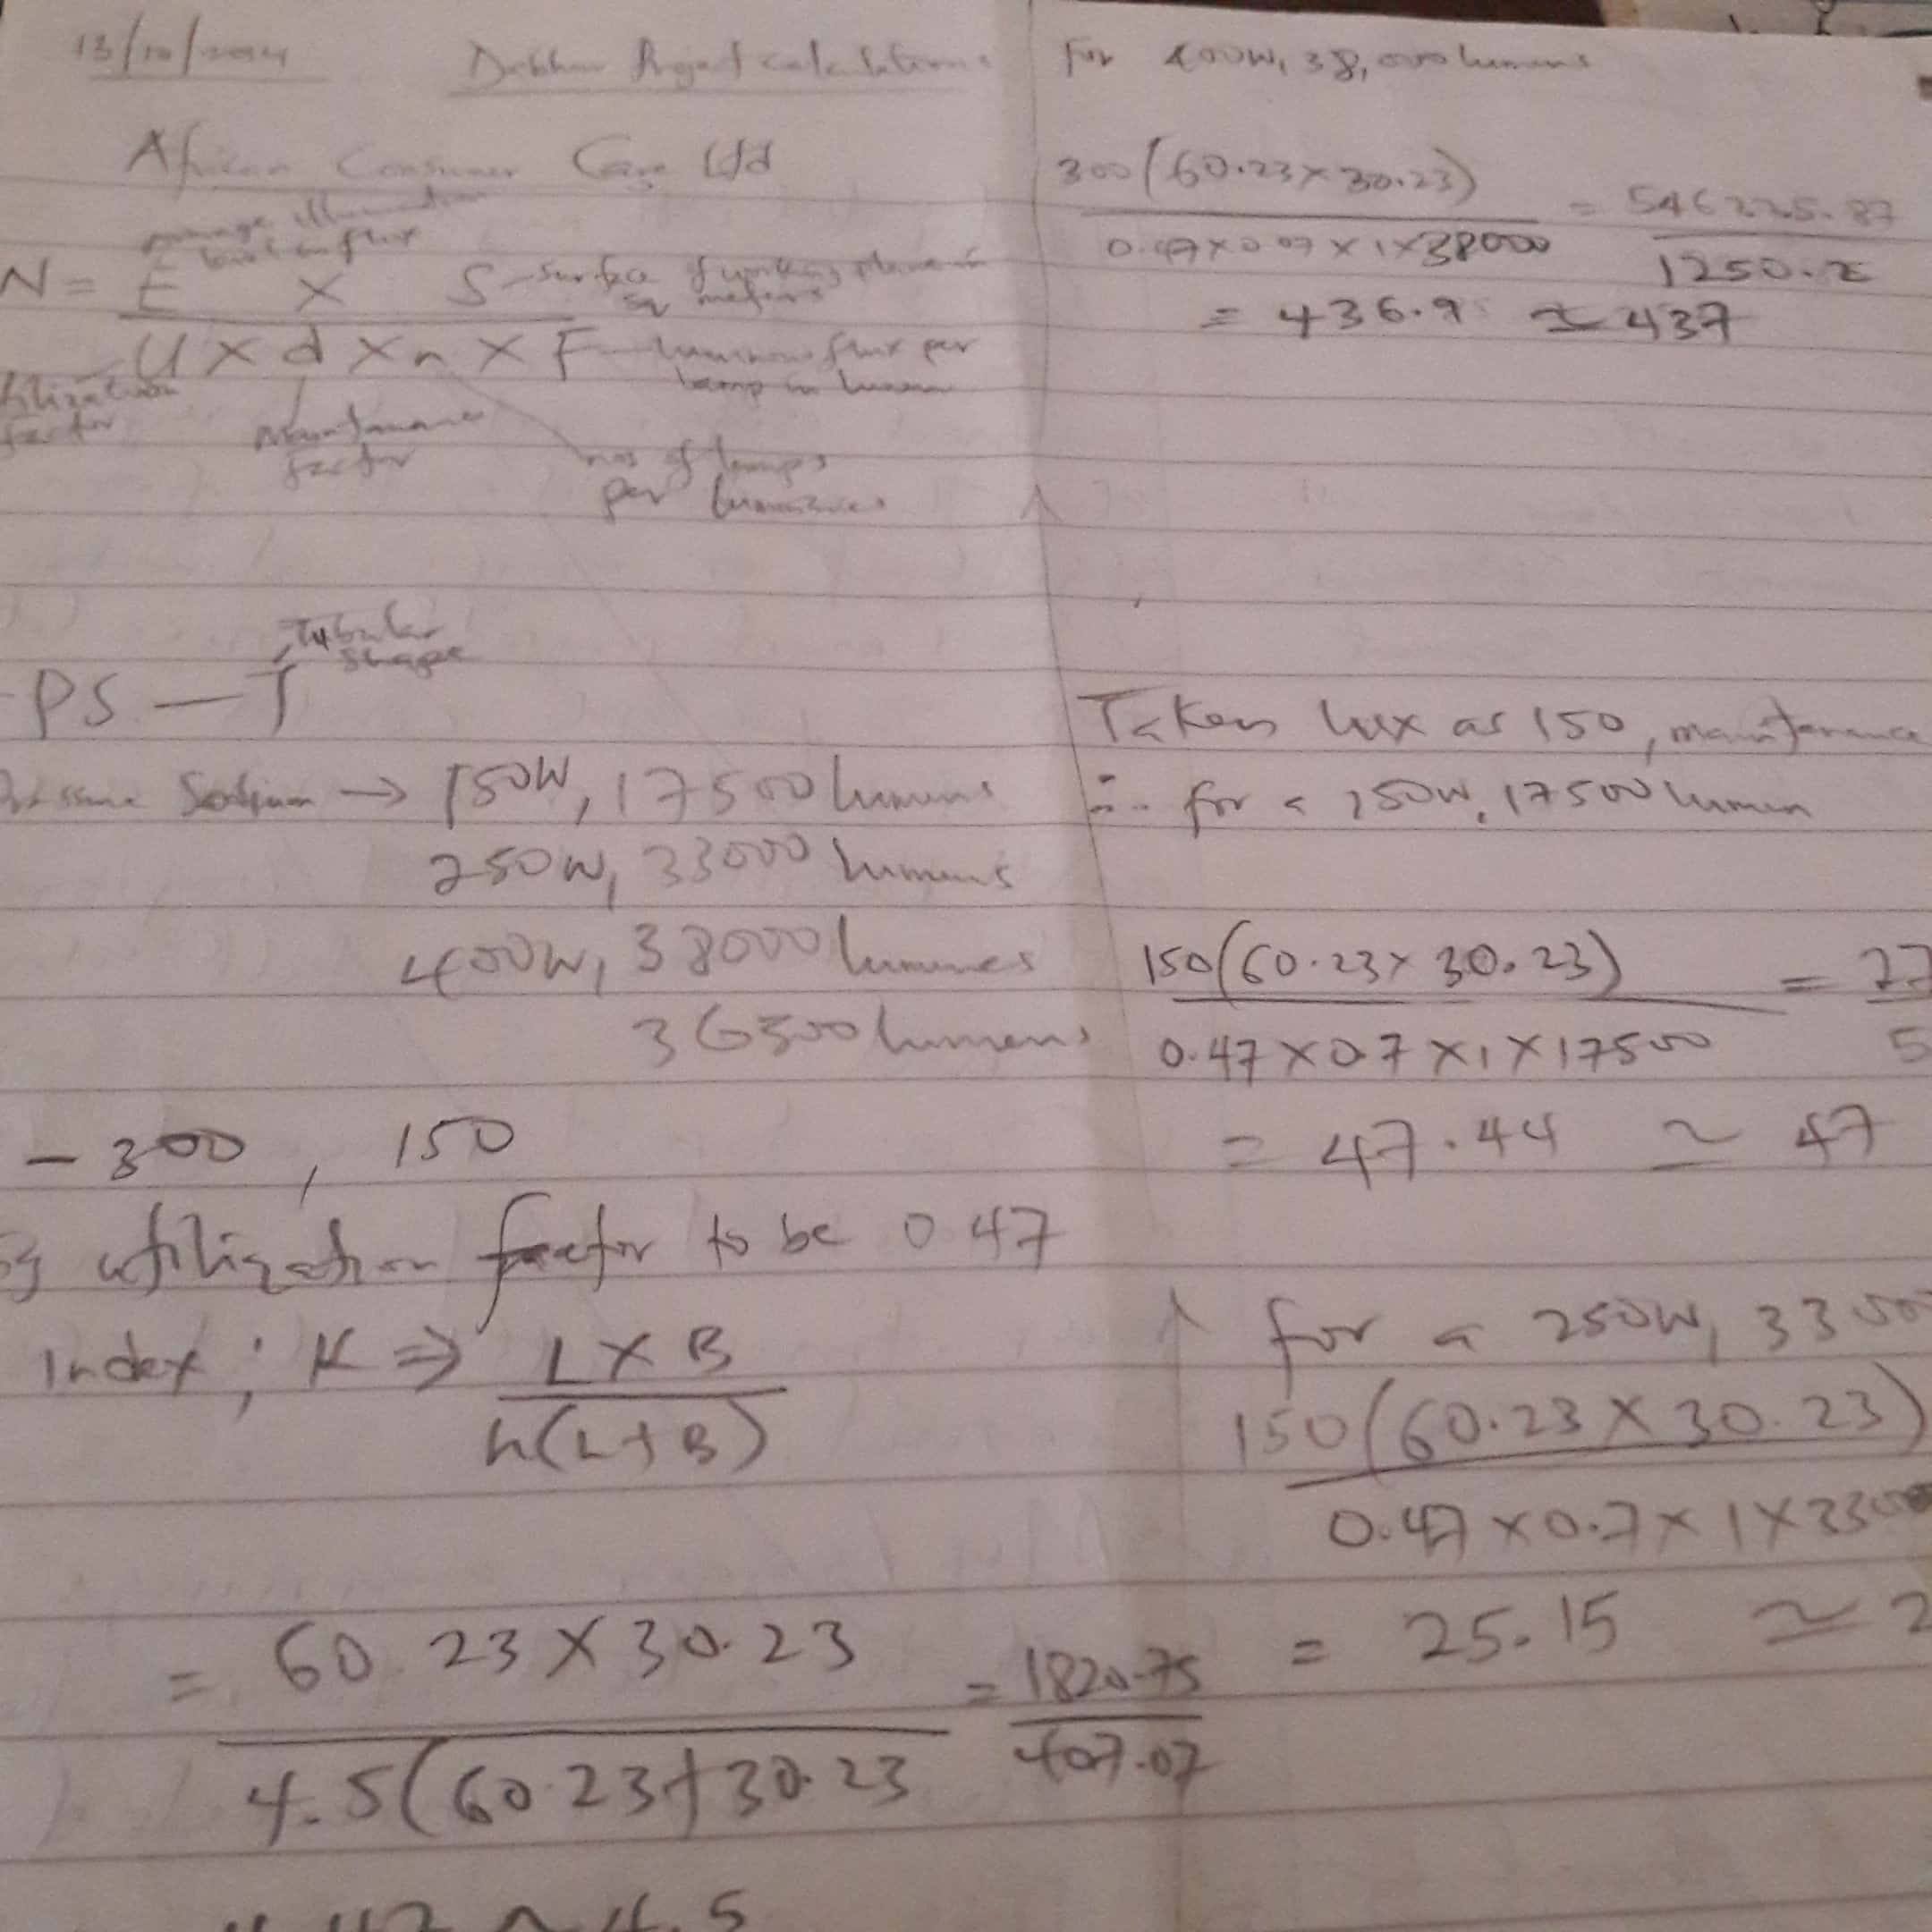 13/10/2014
Dabhar Project calculations
African Consumer Care Ltd
average illumination
level in flux
N = E X S - surface of working plane in
sq meters
U X d X n X F - luminous flux per
lamp in lumen
utilization
factor
Maintanance
factor
nos of lamps
per luminaires
Tubular
shape
PS - T
Sodium → 150W, 17500 lumens
250W, 33000 lumens
400W, 38000 lumenes
36500 lumens
- 300, 150
utilization factor to be 0.47
index; K ⇒ L X B
h(L+B)
= 60.23 X 30.23 = 1820.75
4.5(60.23+30.23 407.07
4.5
For 400W, 38,000 lumens
300(60.23 x 30.23) = 546225.87
0.47 x 0.07 x 1 x 38000 1250.2
= 436.9 ≃ 437
Taken lux as 150, maintenance
∴ for a 150W, 17500 lumen
150(60.23 x 30.23) = 27
0.47 x 0.7 x 1 x 17500 5
= 47.44 ≃ 47
for a 250W, 3300
150(60.23 X 30.23)
0.47 x 0.7 x 1 x 3300
= 25.15 ≃ 2